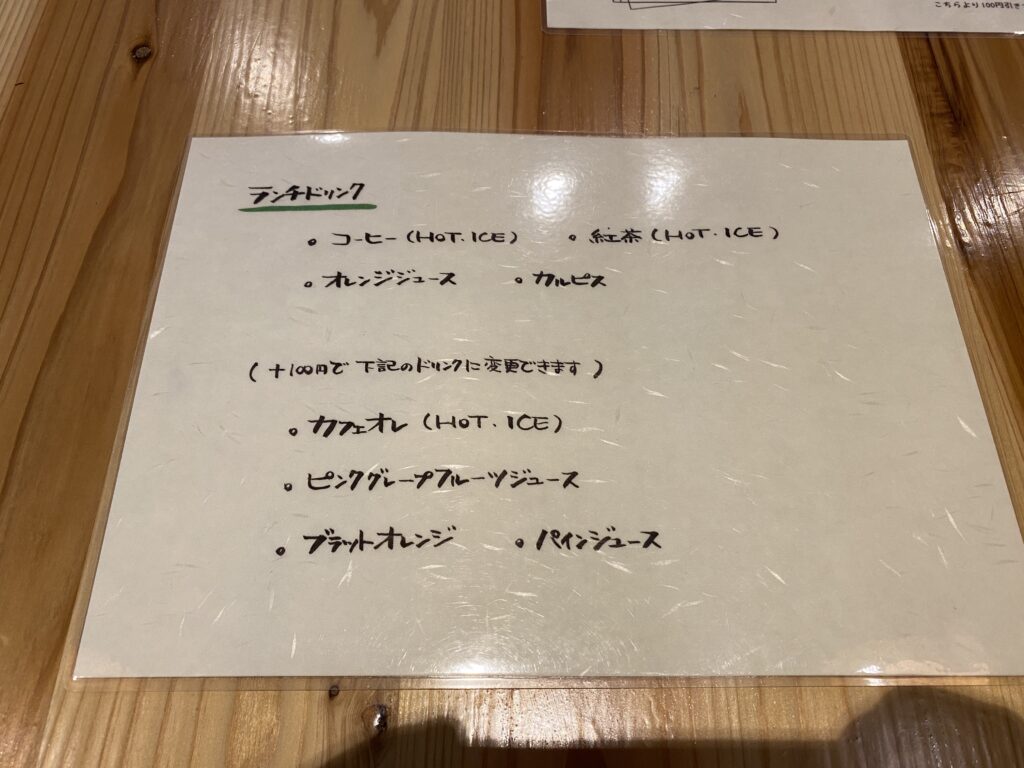 こちらより100円引き
ランチドリンク
• コーヒー (HOT. ICE) • 紅茶 (HOT. ICE)
• オレンジジュース • カルピス
(+100円で 下記のドリンクに変更できます)
• カフェオレ (HOT. ICE)
• ピンクグレープフルーツジュース
• ブラットオレンジ • パインジュース